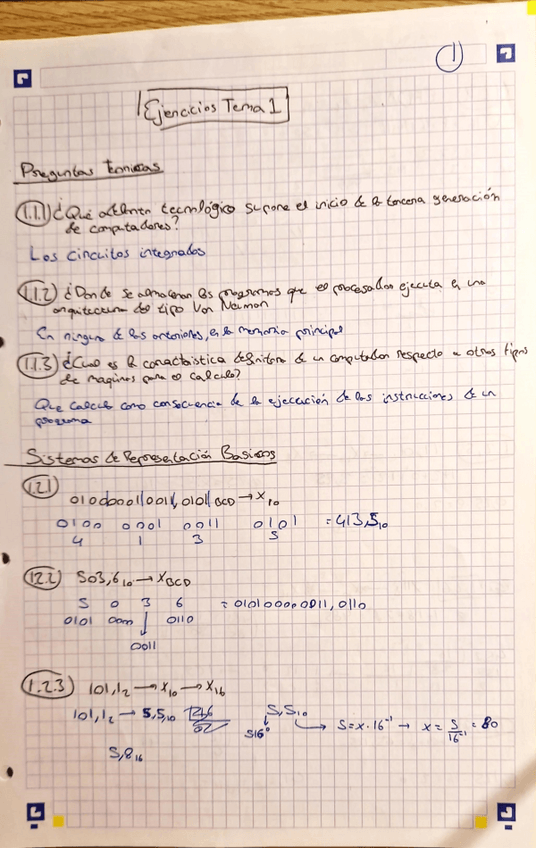 1
Ejercicios Tema 1
Preguntas teóricas
1.1.1) ¿Qué tecnológico supone el inicio de la tercera generación
de computadores?
Los circuitos integrados
1.1.2) ¿Donde se almacenan los programas que el procesador ejecuta en una
arquitectura del tipo Von Neiman
En ninguno de los anteriores, en la memoria principal
1.1.3) ¿Cual es la caracteristica definitoria de un computador respecto a otros tipos
de maquinas para el calculo?
Que calcula como consecuencia de la ejecución de las instrucciones de un
programa
Sistemas de Representación Basicos
1.2.1
010000010011,0101 BCD → X10
0100 0001 0011 0101 = 413,510
4 1 3 5
1.2.2) 503,6 10 → XBCD
5 0 3 6 = 010100000011,0110
0101 0000 ↓ 0110
0011
1.2.3) 101,1 2 → X10 → X16
101,1 2 → 5,5 10 5,5 10
516° → 5=x·16⁻¹ → x = 5/16⁻¹ = 80
5,8 16